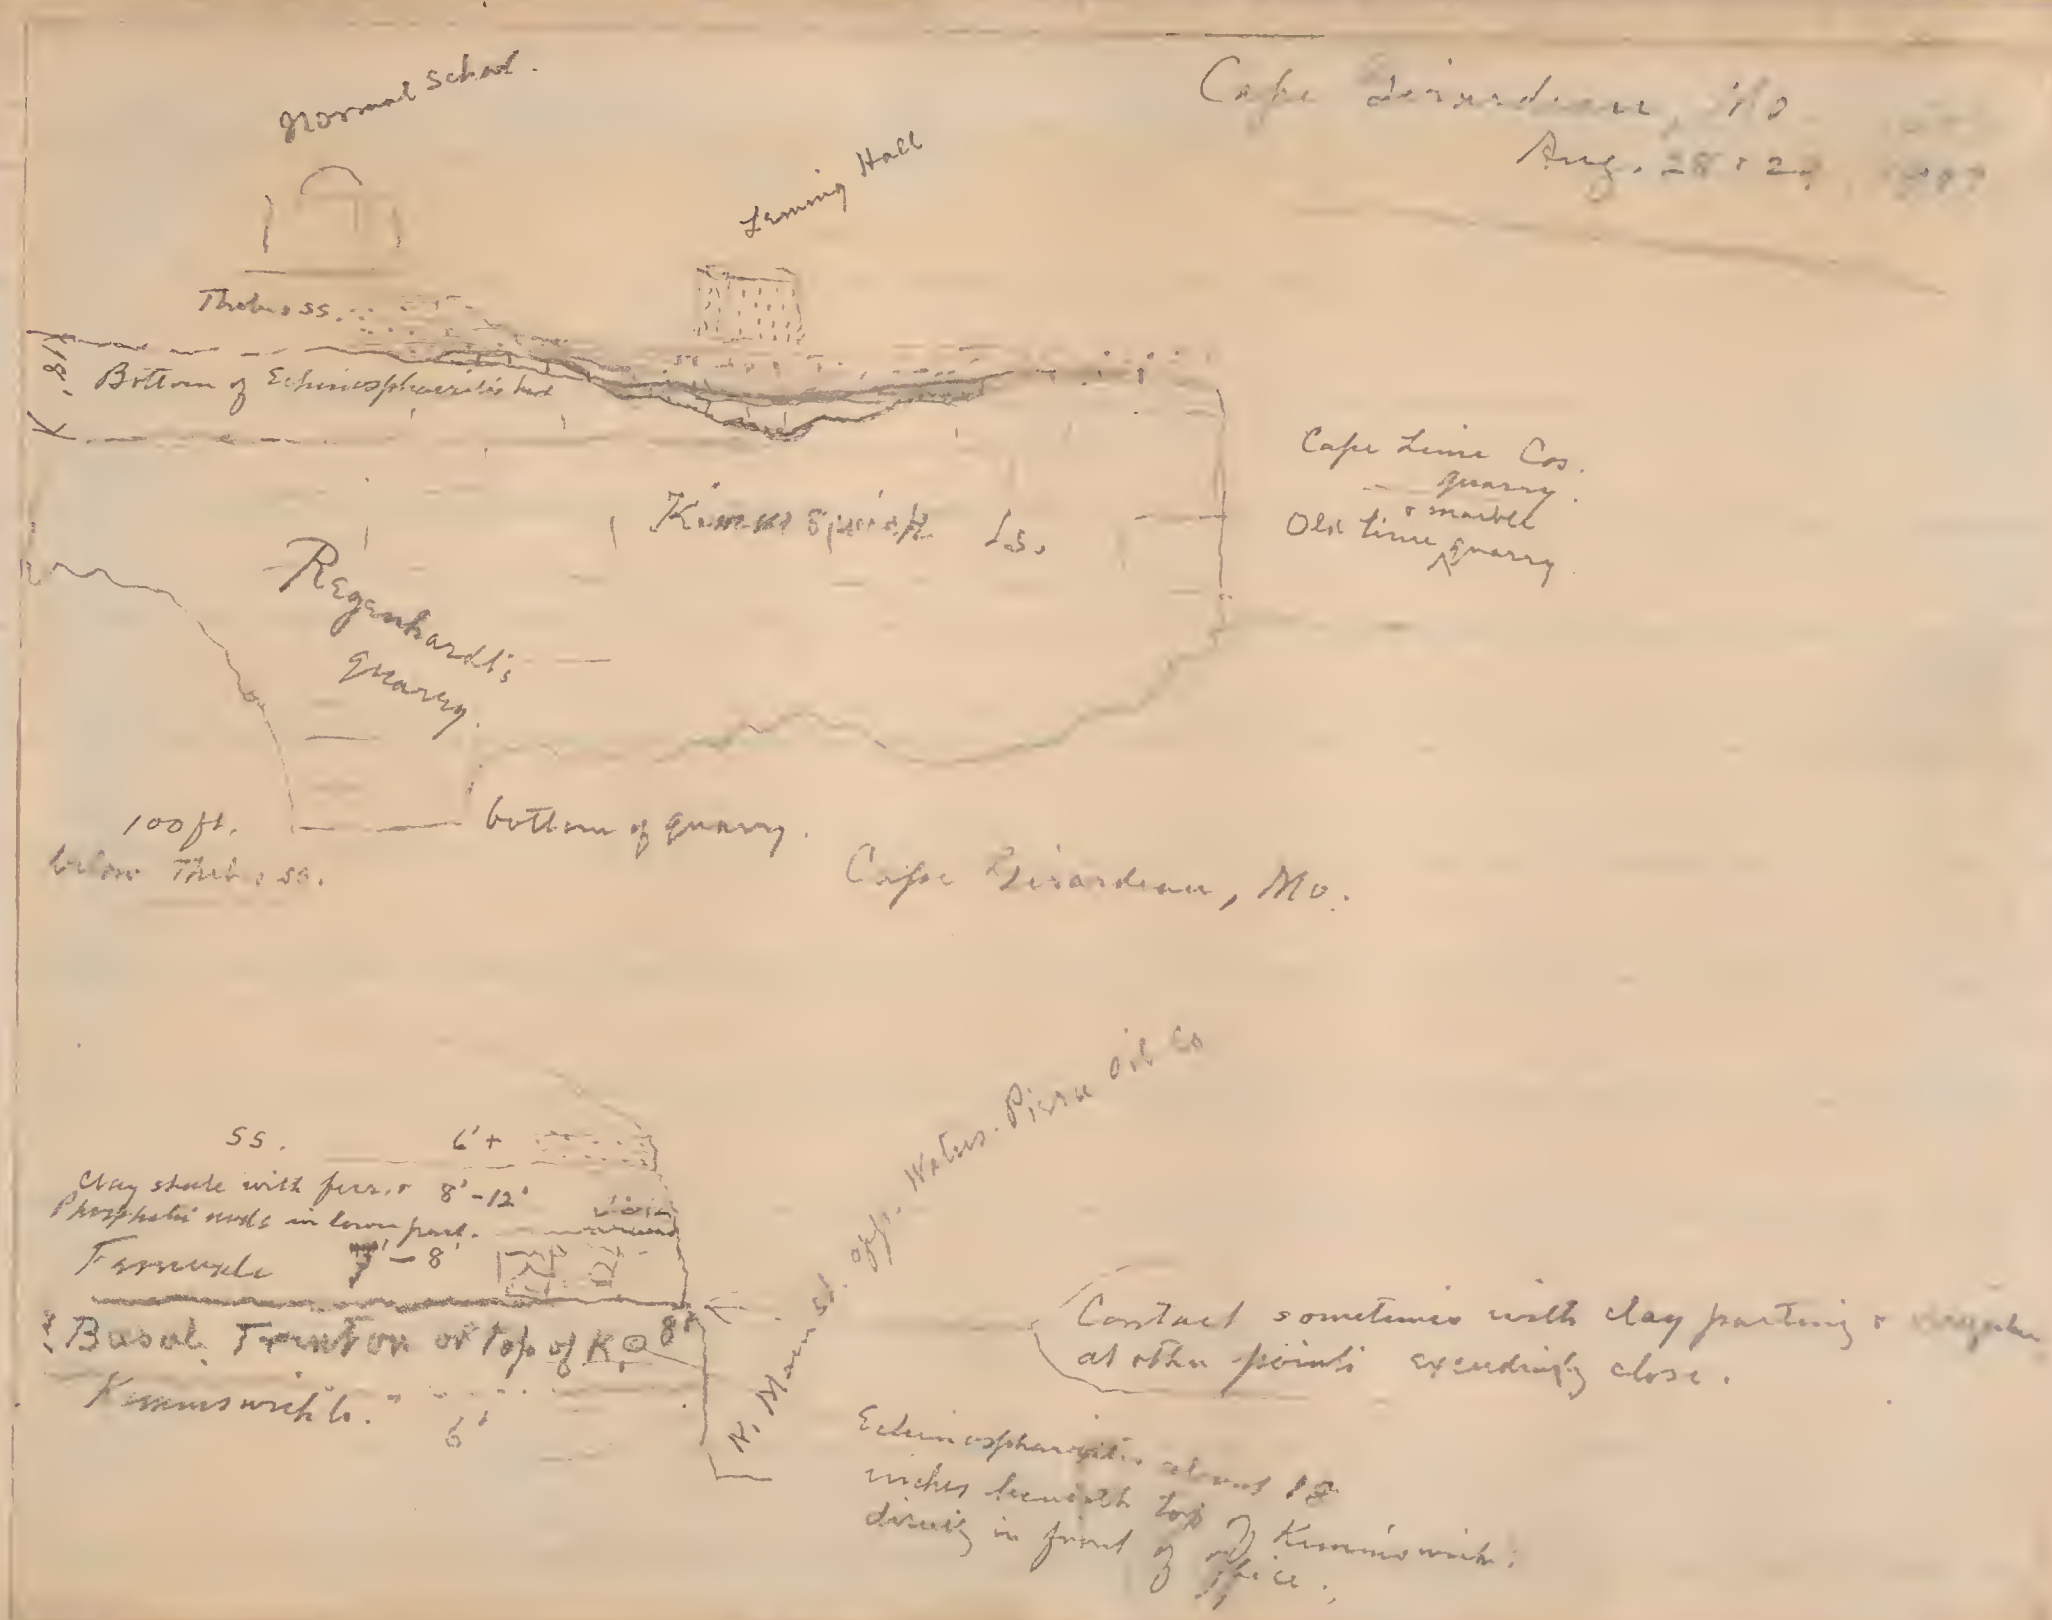 Cape Girardeau, Mo
Aug. 28 & 29
Normal School.
Leming Hall
Thebes ss.
18'
Bottom of Echinosphaerites bed
K
Kimmswick Ls.
Cape Lime Cos.
quarry.
& marble
Old lime quarry
Regenhardt's
quarry.
100 ft.
below Thebes ss.
bottom of quarry.
Cape Girardeau, Mo.
N. Main St. Opp. Waters-Pierce Oil Co
ss. 6'+
Clay shale with ferr. & 8'-12'
Phosphatic nods in lower part.
Fernvale 7'-8'
? Basal Trenton or top of K. 8'
Kimmswick ls. 6'
Contact sometimes with clay parting &
at other points exceedingly close.
Echinosphaerites about 18
inches beneath top of Kimmswick
directly in front of office.